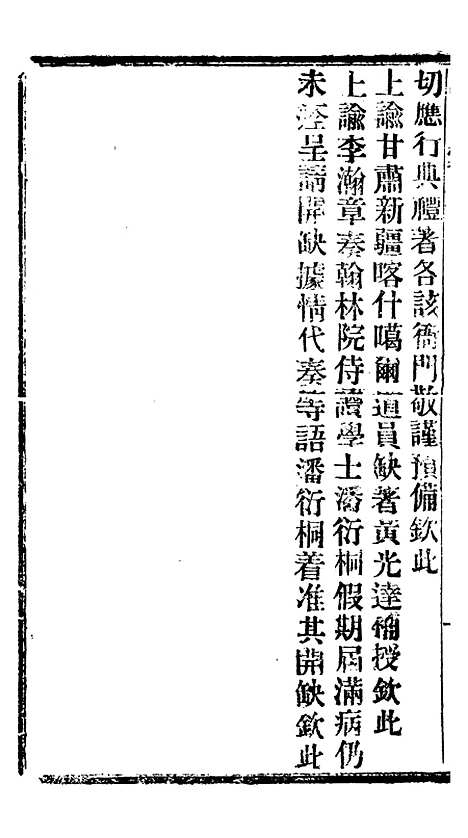 切應行典禮著各該衙門敬謹預備欽此
上諭甘肅新疆喀什噶爾道員缺著黃光達補授欽此
上諭李瀚章奏翰林院侍讀學士潘衍桐假期屆滿病仍
未痊呈請開缺據情代奏等語潘衍桐着准其開缺欽此